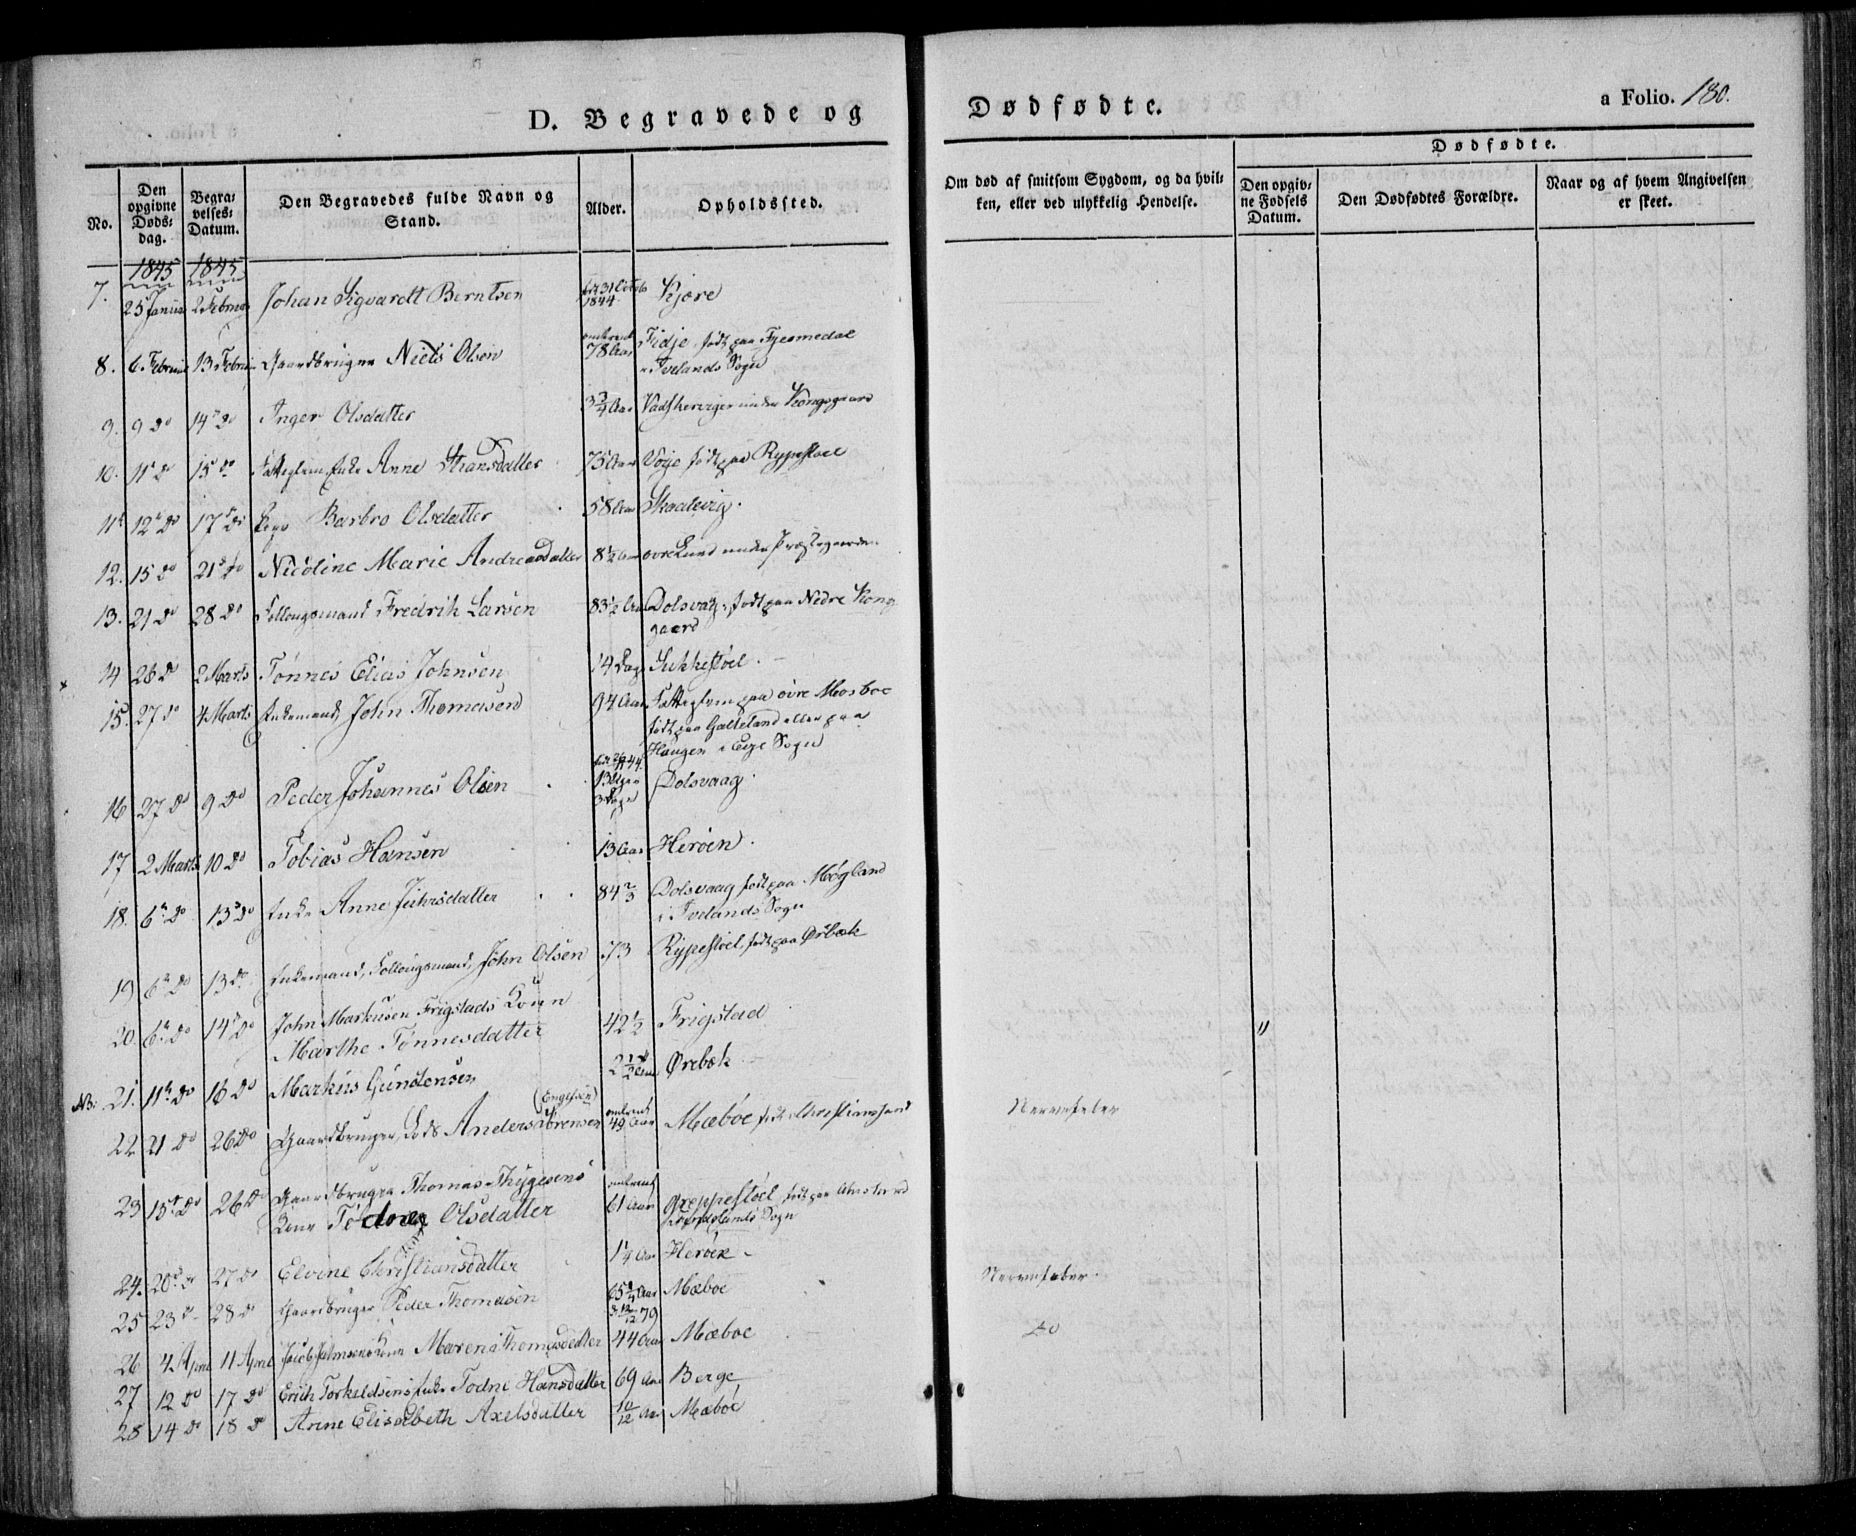 D. Begravede og Dødfødte.
a Folio. 180.
No.
Den opgivne Døds-dag.
Begra-velses-Datum.
Den Begravedes fulde Navn og Stand.
Alder.
Opholdssted.
Om død af smitsom Sygdom, og da hvil-
ken, eller ved ulykkelig Hendelse.
Dødfødte.
Den opgiv-ne Fødsels Datum.
Den Dødfødtes Forældre.
Naar og af hvem Angivelsen er skeet.
1845 1845
7. 25 Januar 2 Februar Johan Sigvardt Berntsen 1844 Kjære
8. 6 Februar 13 Februar Gaardbruger Niels Olsen omtrent 78 Aar Fidje født paa Fjermedal
i Ivelands Sogn
9. 9 do 14 do Inger Olsdatter 3 3/4 Aar under Kongsgaard
10. 11 do 15 do Enke Anne Hansdatter 75 Aar Vøye født paa Rypestoel
11 12 do 17 do Barbro Olsdatter 58 Aar Skaalevig.
12. 15 do 21 do Nicoline Marie Andreasdatter 8 1/2 Aar øvre Lund under Præstegaarden
13. 21 do 28 do Follougsmand Fredrik Larsen 83 1/2 Aar Dolsvaag, født paa Nedre Kong
gaard
14 28 do 2 Marts Tønnes Elias Johnsen 14 Dage Sukkestøel.
15 27 do 4 Marts Enkemand John Thomasen 94 Aar Fattiglem paa øvre Mosboe
født paa Galteland eller paa
Haugen i Evje Sogn
16 27 do 9 do Peder Johannes Olsen 13 Uger 3 Dage Dolsvaag.
17 2 Marts 10 do Tobias Hansen 13 Aar Herøen.
18. 6 do 13 do Enke Anne Juhrsdatter 84 2/3 Dolsvaag født paa Møgland
i Ivelands Sogn
19 6 do 13 do Enkemand, Follougsmand, John Olsen 73 Rypestoel, født paa Ørbæk
20. 6 do 14 do John Markusen Frigstads Kone
Marthe Tønnesdatter 42 1/2 Frigstad
NB: 21. 11 do 16 do Markus Gundersen 2 1/2 Aar Ørebæk
(Engelsen)
22 21 do 26 do Gaardbruger, Lods Anders Sørensen omtrent 49 Aar Mæboe født i Christianssand Nervefeber
23 15 do 26 do Gaardbruger Thomas Thygesens
Kone Todne Olsdatter omtrent 61 Aar Greppestøel, født paa
Sogn
24. 20 do 27 do Elvine Christiansdatter 1/4 Aar Herøen
25 23 do 28 do Gaardbruger Peder Thomasen 65 3/4 Aar Mæboe Nervefeber.
79
26 4 April 11 April Jacob Salmonsens Kone Maren Thomasdatter 44 Aar Mæboe do
27 12 do 17 do Erich Torkeldsens Enke Todne Hansdatter 69 Aar Berge
28 14 do 18 do Anne Elisabeth Axelsdatter 10/12 Aar Mæboe